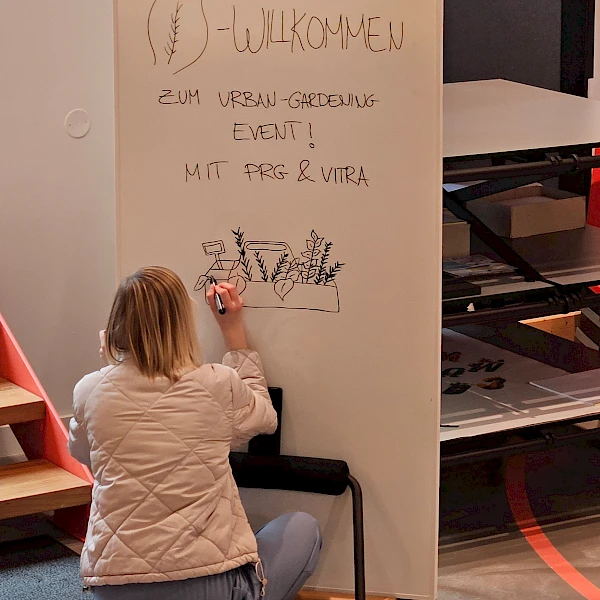 -WILLKOMMEN
ZUM URBAN-GARDENING
EVENT!
MIT PRG & VITRA